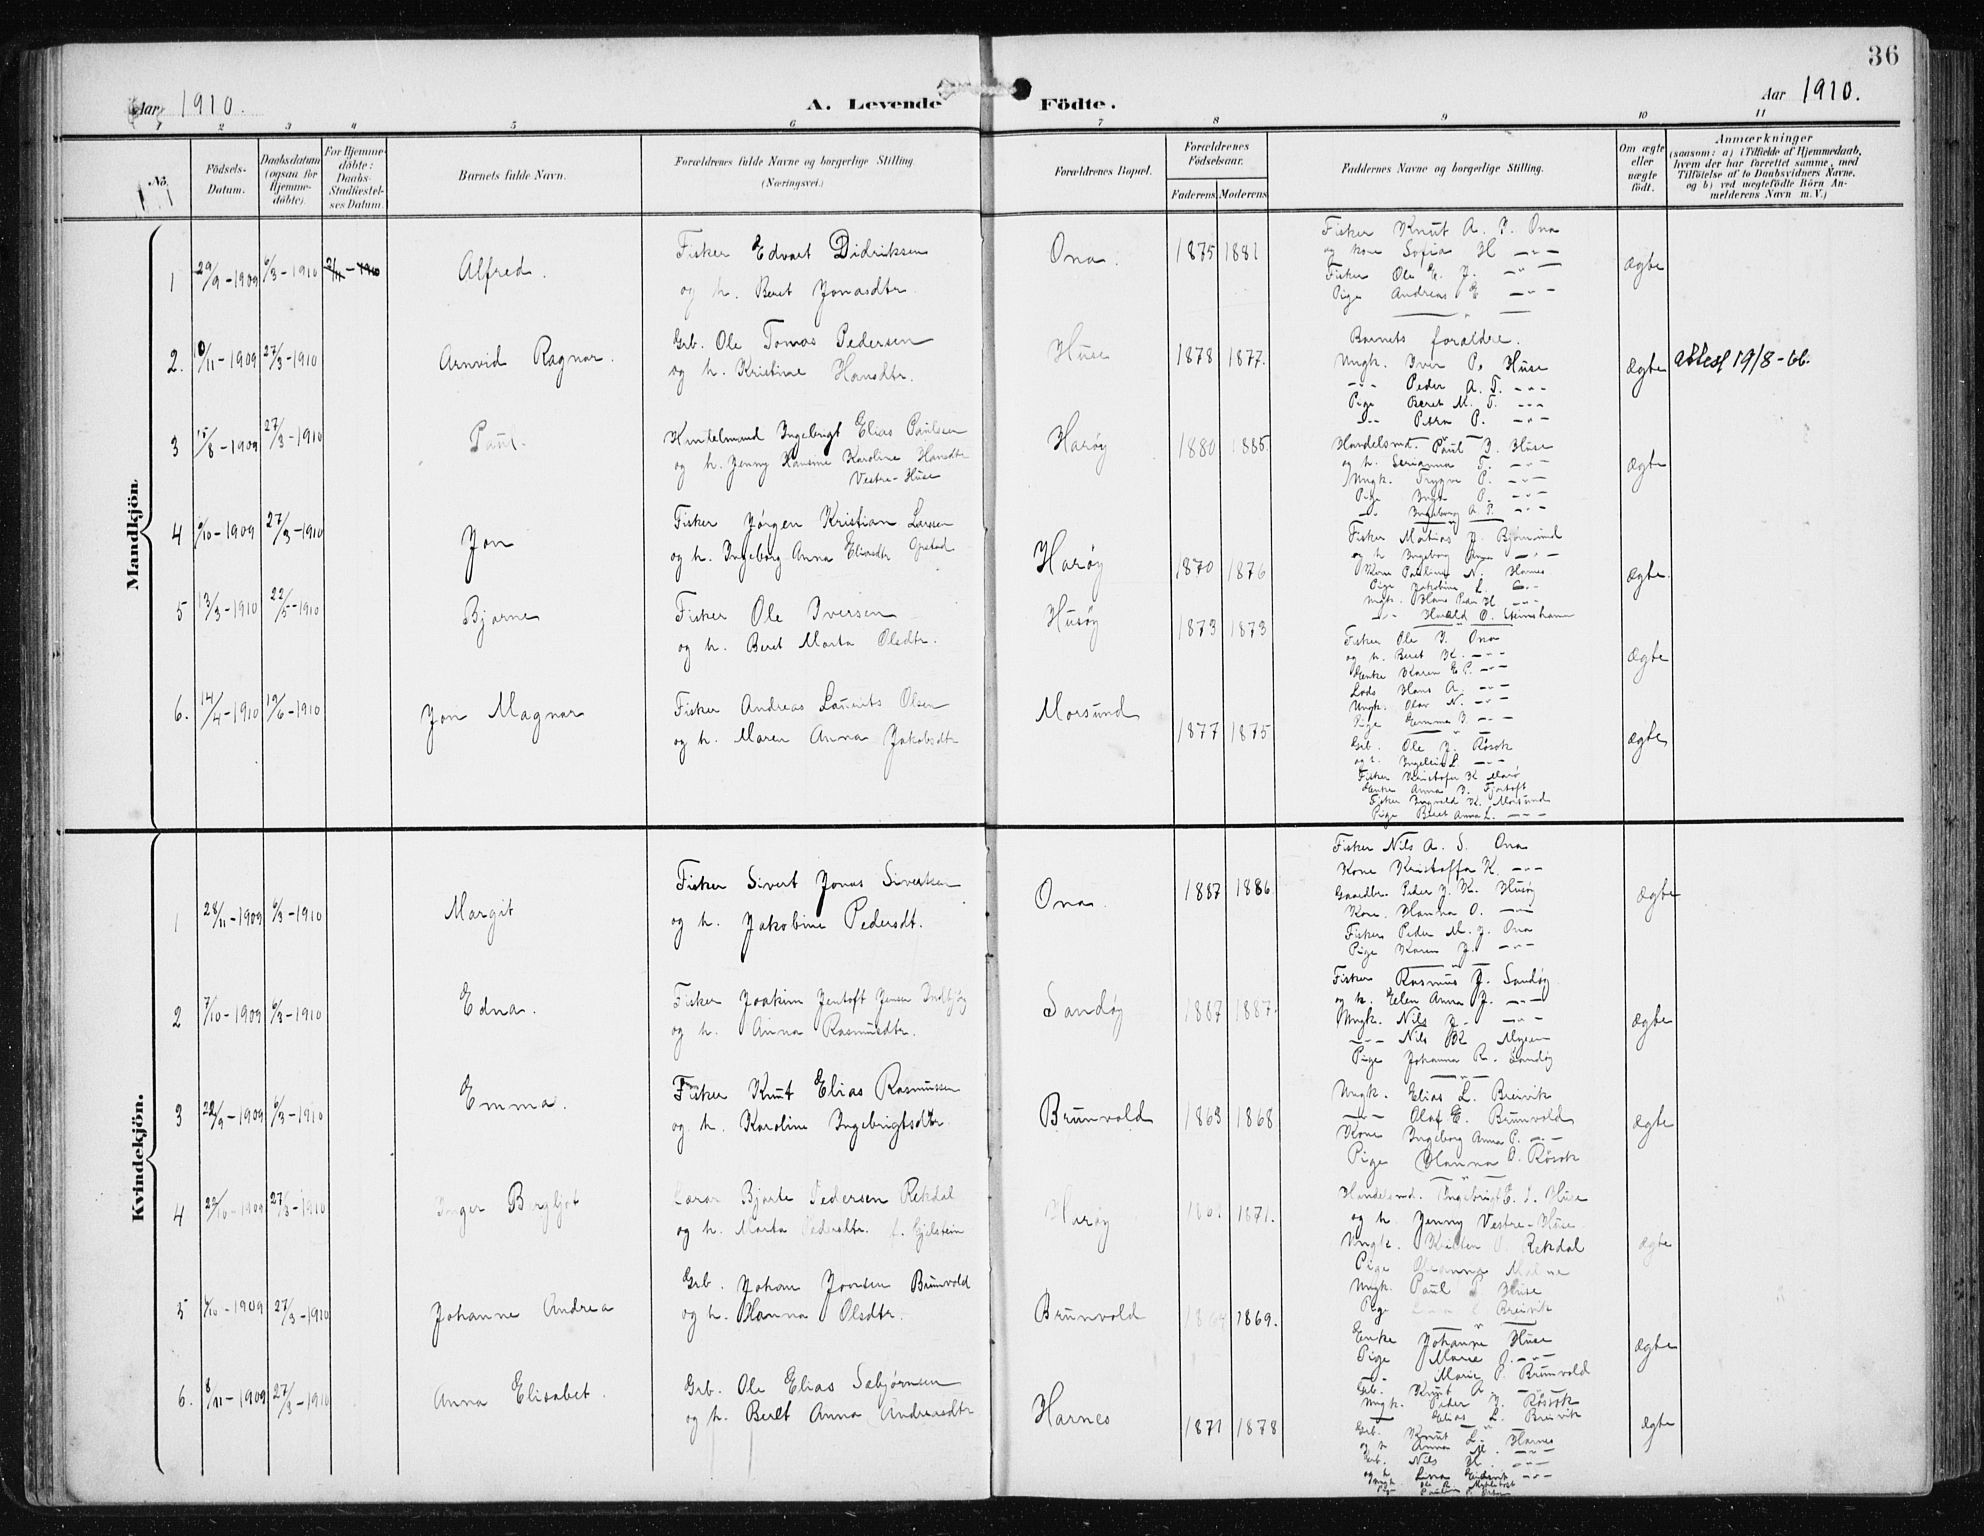 36
Aar 1910.
A. Levende Födte.
Aar 1910.
1 2 3 4 5 6 7 8 9 10 11
No.
Födsels-Datum.
Daabsdatum (ogsaa for Hjemme-döbte).
For Hjemme-döbte: Daabs-Stadfæstel-ses Datum.
Barnets fulde Navn.
Forældrenes fulde Navne og borgerlige Stilling.
(Næringsvei.)
Forældrenes Bopæl.
Forældrenes Födselsaar.
Faderens Moderens
Faddernes Navne og borgerlige Stilling.
Om ægte eller uægte födt.
Anmærkninger
(saasom: a) i Tilfælde af Hjemmedaab,
hvem der har forrettet samme, med
Tilföielse af to Daabsvidners Navne,
og b) ved uægtefödte Börn An-
melderens Navn m. V.)
Mandkjön.
1 29/9-1909 6/3-1910 Alfred.
Fisker Edvart Didriksen
og h. Beret Jonasdtr.
Ona. 1875 1881
Fisker Knut A. J. Ona
og kone Sofia H -"-
Fisker Ole E. J. -"-
Pige Andreas E -"-
ægte
2. 10/11-1909 27/3-1910 Arnvid Ragnar.
Grb. Ole Tomas Pedersen
og h. Kristine Hansdtr.
Huse 1878 1877.
Barnets foraldre.
Ungk. Iver P. Huse
-"- Peder A. T. -"-
Pige Beret M. T. -"-
-"- Petra P. -"-
ægte
attest 19/8-66.
3 15/8-1909 27/3-1910 Paul.
Ingebrigt Elias Paulsen
og h. Jenny Hansine Karoline Hansdtr
Vestre-Huse
Harøy 1880 1885.
Handelsmd. Paul I. Huse
og h. Serianna T. -"-
Ungk. Trygve P. -"-
Pige Inga P. -"-
-"- Ingeborg A. P. -"-
ægte
4 6/10-1909 27/3-1910 Jon
Fisker Jørgen Kristian Larsen
og h. Ingeborg Anna Eliasdtr
Harøy 1870 1876
Fisker Matias J. Bjørnsund
og h Ingeborg Anna -"-
Kone Pauline N. Harnes
Pige Jakobine L. -"-
Ungk. Hans Peder H -"-
-"- Harald O. Steinshamn
ægte.
5 13/3-1910 22/5-1910 Bjarne
Fisker Ole Iversen
og h. Beret Marta Olsdtr.
Husøy 1873 1873
Fisker Ole J. Ona
og h. Beret K. -"-
Enke Karen E P. -"-
Lods Hans A. -"-
Ungk. Olav N. -"-
Pige Gemma J. -"-
ægte
6. 14/4-1910 19/6-1910 Jon Magnar
Fisker Andreas Laurits Olsen
og h. Maren Anna Jakobsdtr
Morsund 1877 1875
Grb. Ole J. Røsok
og h. Ingeleiv L. -"-
Fisker Kristofer K Marø
Enke Anna J. Fjørtoft
Fisker Ingvald K. Morsund
Pige Beret Anna L. -"-
ægte
Kvindekjön.
1 28/11-1909 6/3-1910 Margit
Fisker Sivert Jonas Sivertsen
og h. Jakobine Pedersdt.
Ona. 1887 1886
Fisker Nils A. S. Ona
Kone Kristoffa K. -"-
Gaardbr. Peder J. K. Husøy
Kone. Hanna O. -"-
Fisker Peder M. J. Ona
Pige Karen J. -"-
ægte
2 7/10-1909 6/3-1910 Edna.
Fisker Joakim Jentoft Jensen
og h. Anna Rasmusdtr.
Sandøy 1887 1887.
Fisker Rasmus J. Sandøy
og h. Elen Anna J. -"-
Ungk. Nils J. -"-
-"- Nils K Myren
Pige Johanna R. Sandøy
ægte
3 22/9-1909 6/3-1910 Emma.
Fisker Knut Elias Rasmussen
og h. Karoline Ingebrigtsdtr.
Brunvold 1863 1868
Ungk. Elias L. Breivik
-"- Olaf E. Brunvold
Kone Ingeborg Anna P. -"-
Pige Hanna O. Røsok
ægte
4 29/10-1909 27/3-1910 Inger Bergljot
Lærer Bjarte Pedersen Rekdal
og h. Marta Pedersdtr. f. Gjelstein
Harøy 1861 1871.
Handelsmd. Ingebrigt E. P. Huse
og h. Jenny Vestre-Huse
Ungk. Kristen P. Rekdal
Pige Oleanna Malme
Ungk. Paul I. Huse
Pige Breivik
ægte
5 /10-1909 27/3-1910 Johanne Andrea
Grb. Johan Jonsen Brunvold
og h. Hanna Olsdtr.
Brunvold 1864 1869.
Enke Johanne Huse
Pige Marie J. -"-
-"- Marie P. Brunvold
Grb. Knut A. -"-
Ungk. Peder J. Røsok
-"- Elias L. Breivik
ægte
6. 8/11-1909 27/3-1910 Anna Elisabet.
Grb. Ole Elias Sæbjørnsen
og h. Beret Anna Andreasdtr
Harnes 1871 1878
Grb. Knut L. Harnes
og h Anna M. -"-
Grb. Nils H. -"-
og h Lina -"-
ægte